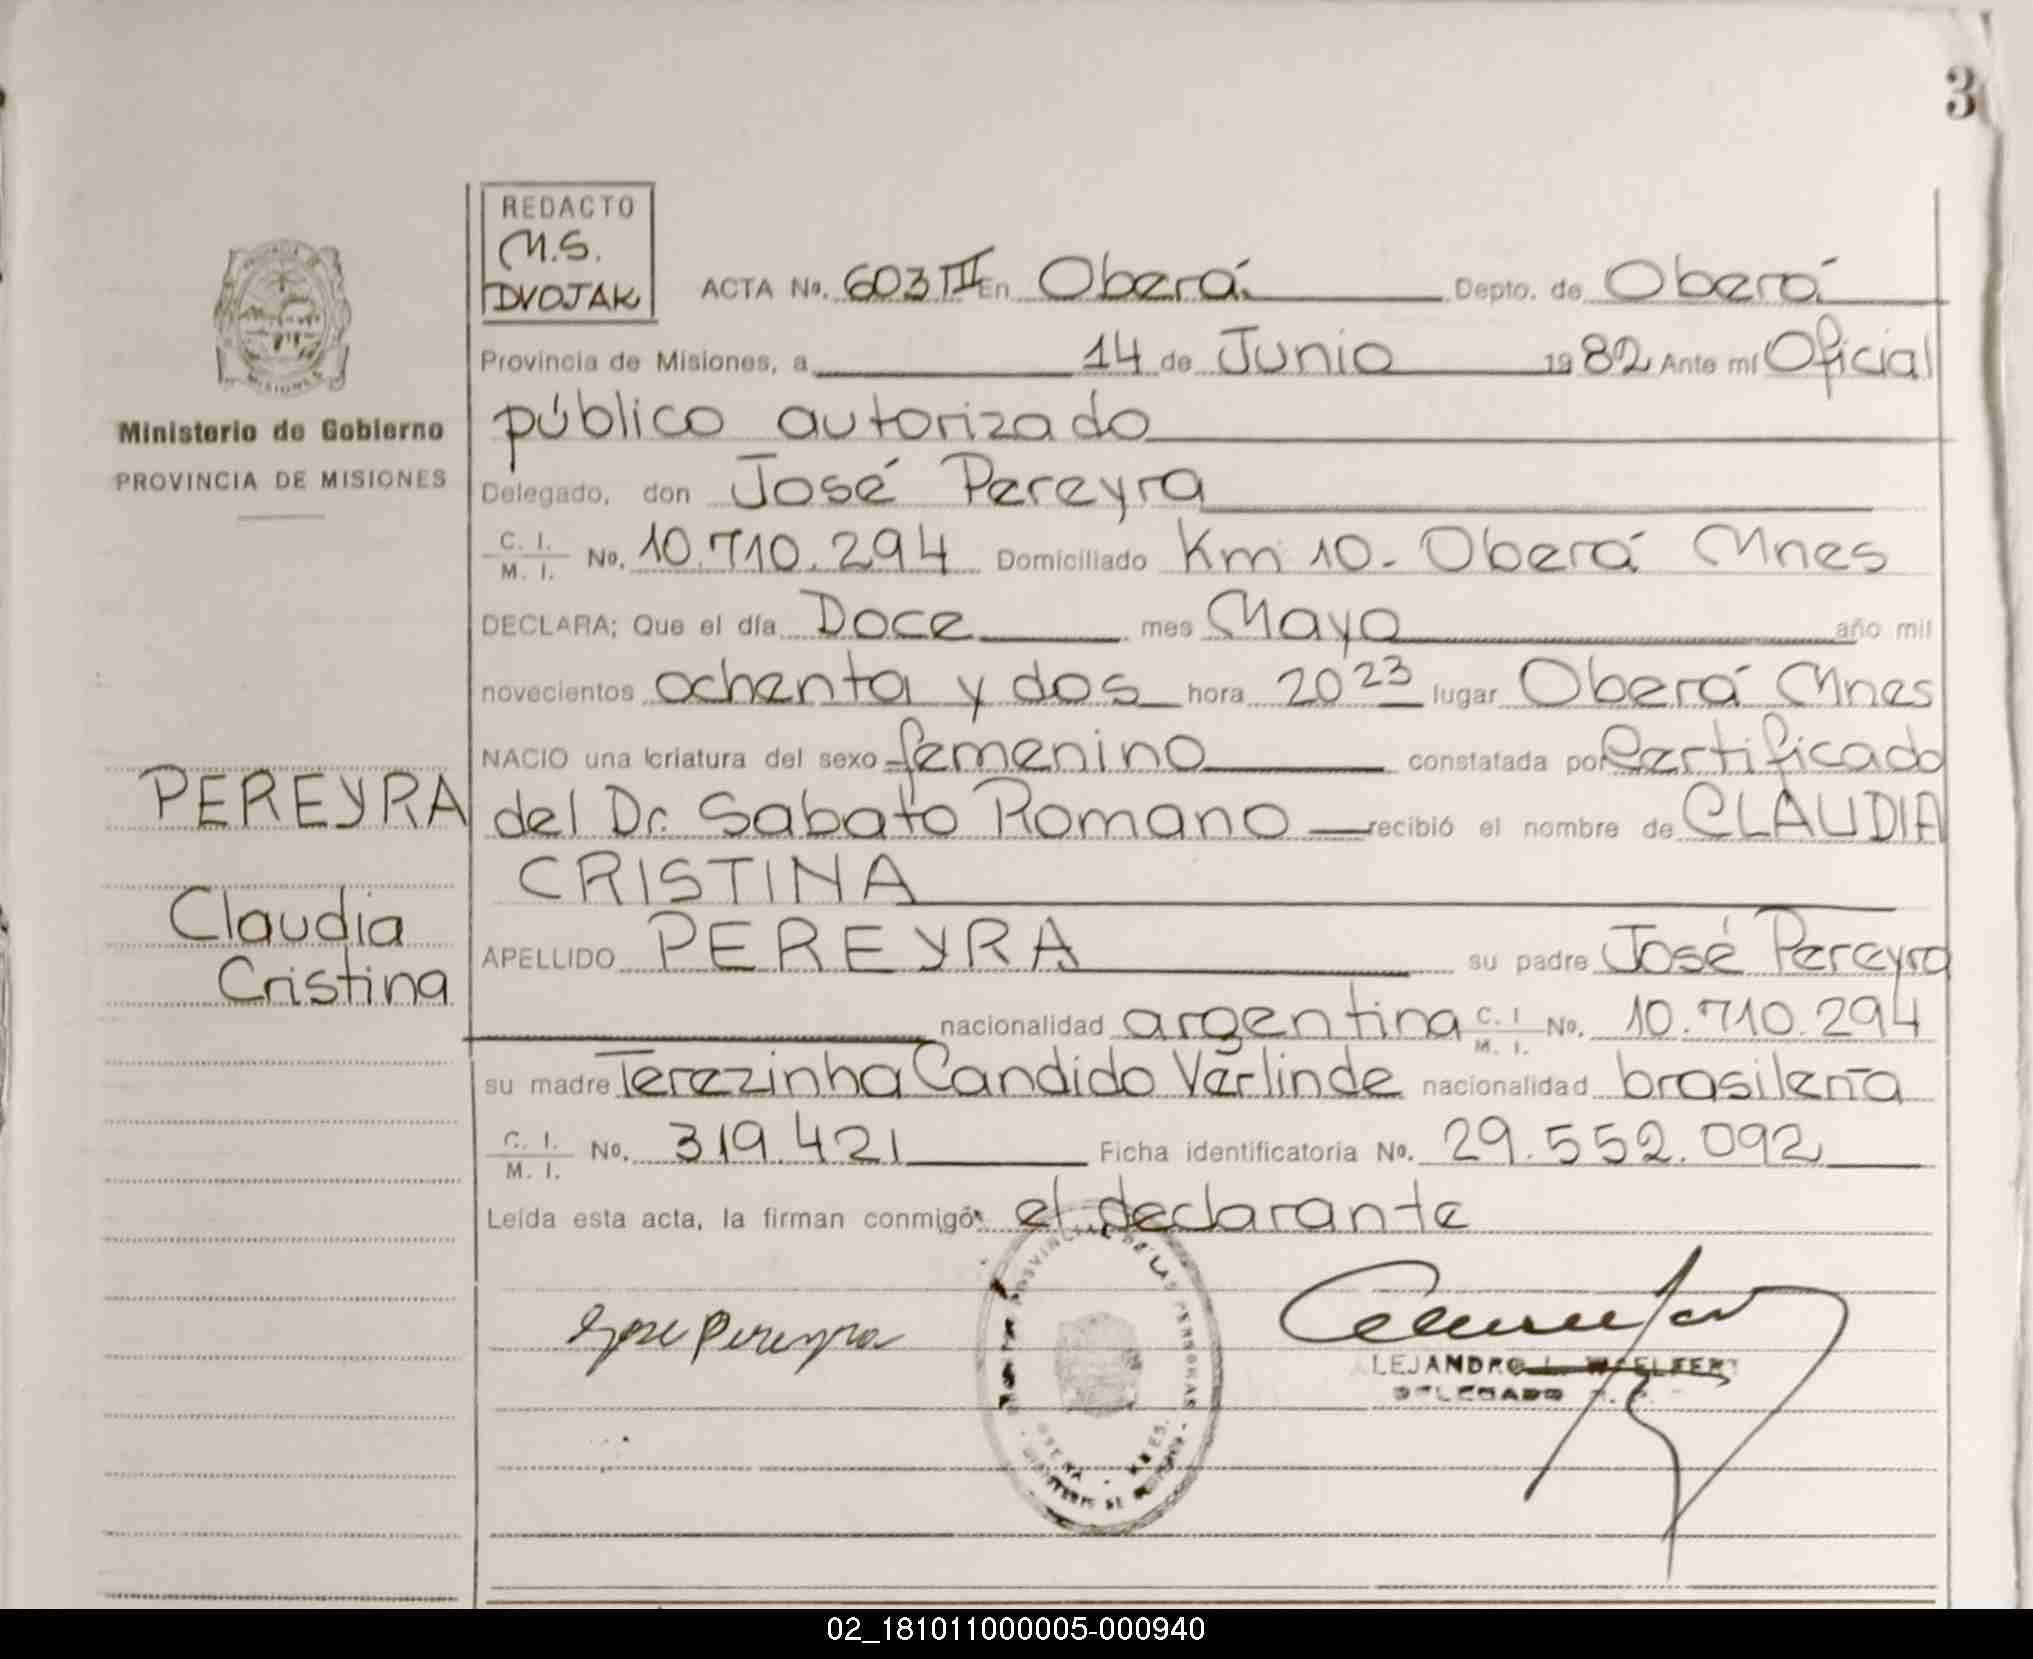 3
REDACTO
M.S.
DVOJAK
ACTA No. 603 III En Oberá Depto. de Oberá
Provincia de Misiones, a 14 de Junio 1982 Ante mí Oficial
público autorizado
Ministerio de Gobierno
PROVINCIA DE MISIONES
Delegado, don José Pereyra
C. I. M. I. No. 10.710.294 Domiciliado Km 10. Oberá Mnes
DECLARA; Que el día Doce mes Mayo año mil
novecientos ochenta y dos hora 20 23 lugar Oberá Mnes
NACIO una criatura del sexo femenino constatada por Certificado
PEREYRA
del Dr. Sabato Romano recibió el nombre de CLAUDIA
CRISTINA
Claudia
Cristina
APELLIDO PEREYRA su padre José Pereyra
nacionalidad argentina C. I. M. I. No. 10.710.294
su madre Terezinha Candido Verlinde nacionalidad brasileña
C. I. M. I. No. 319.421 Ficha identificatoria No. 29.552.092
Leída esta acta, la firman conmigo el declarante
Jose Pereyra
ALEJANDRO L.
DELEGADO
02_181011000005-000940